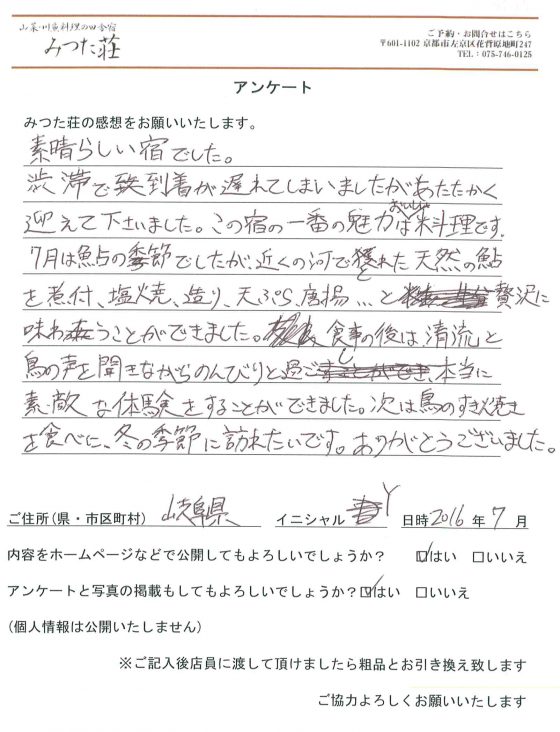 山菜・川魚料理の四季宿
みつた荘
ご予約・お問合せはこちら
〒601-1102 京都市左京区花脊原地町247
TEL：075-746-0125
アンケート
みつた荘の感想をお願いいたします。
素晴らしい宿でした。
渋滞で到着が遅れてしまいましたがあたたかく
迎えて下さいました。この宿の一番の魅力はおいしい料理です。
7月は鮎の季節でしたが、近くの河で獲れた天然の鮎
を煮付、塩焼、造り、天ぷら、唐揚…と贅沢に
味わうことができました。食事の後は、清流と
鳥の声を聞きながらのんびりと過ごし、本当に
素敵な体験をすることができました。次は鳥のすき焼き
を食べに、冬の季節に訪れたいです。ありがとうございました。
ご住所(県・市区町村) 岐阜県 イニシャル Y 日時 2016 年 7 月
内容をホームページなどで公開してもよろしいでしょうか？ ☑はい □いいえ
アンケートと写真の掲載もしてもよろしいでしょうか？☑はい □いいえ
(個人情報は公開いたしません)
※ご記入後店員に渡して頂けましたら粗品とお引き換え致します
ご協力よろしくお願いいたします